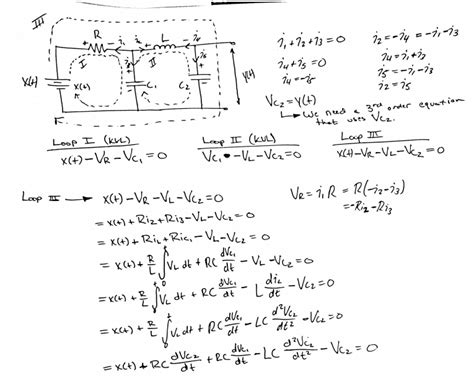 III
R
i₁
i₄
L
i₅
+ -
I
II
i₃
i₅
x(t)
x(t)
C₁
C₂
y(t)
i₁+i₂+i₃=0
i₄+i₅=0
i₄=-i₅
i₂=-i₄=-i₁-i₃
i₄=i₁+i₃
i₅=-i₁-i₃
i₂=i₅
V_C₂=y(t)
↳ We need a 3rd order equation
that uses V_C₂.
Loop I (KVL)
x(t)-V_R-V_C₁=0
Loop II (KVL)
V_C₁-V_L-V_C₂=0
Loop III
x(t)-V_R-V_L-V_C₂=0
Loop III → x(t)-V_R-V_L-V_C₂=0
V_R=i₁R = R(-i₂-i₃)
=-Ri₂-Ri₃
=x(t)+Ri₂+Ri₃-V_L-V_C₂=0
=x(t)+Ri_L+Ri_C₁-V_L-V_C₂=0
=x(t)+R/L ∫₀ᵗ V_L dt + RC dV_C₁/dt - V_L - V_C₂=0
=x(t)+R/L ∫₀ᵗ V_L dt + RC dV_C₁/dt - L di_L/dt - V_C₂=0
=x(t)+R/L ∫₀ᵗ V_L dt + RC dV_C₁/dt - LC d²V_C₂/dt² - V_C₂=0
=x(t)+RC dV_C₂/dt + RC dV_C₁/dt - LC d²V_C₂/dt² - V_C₂=0